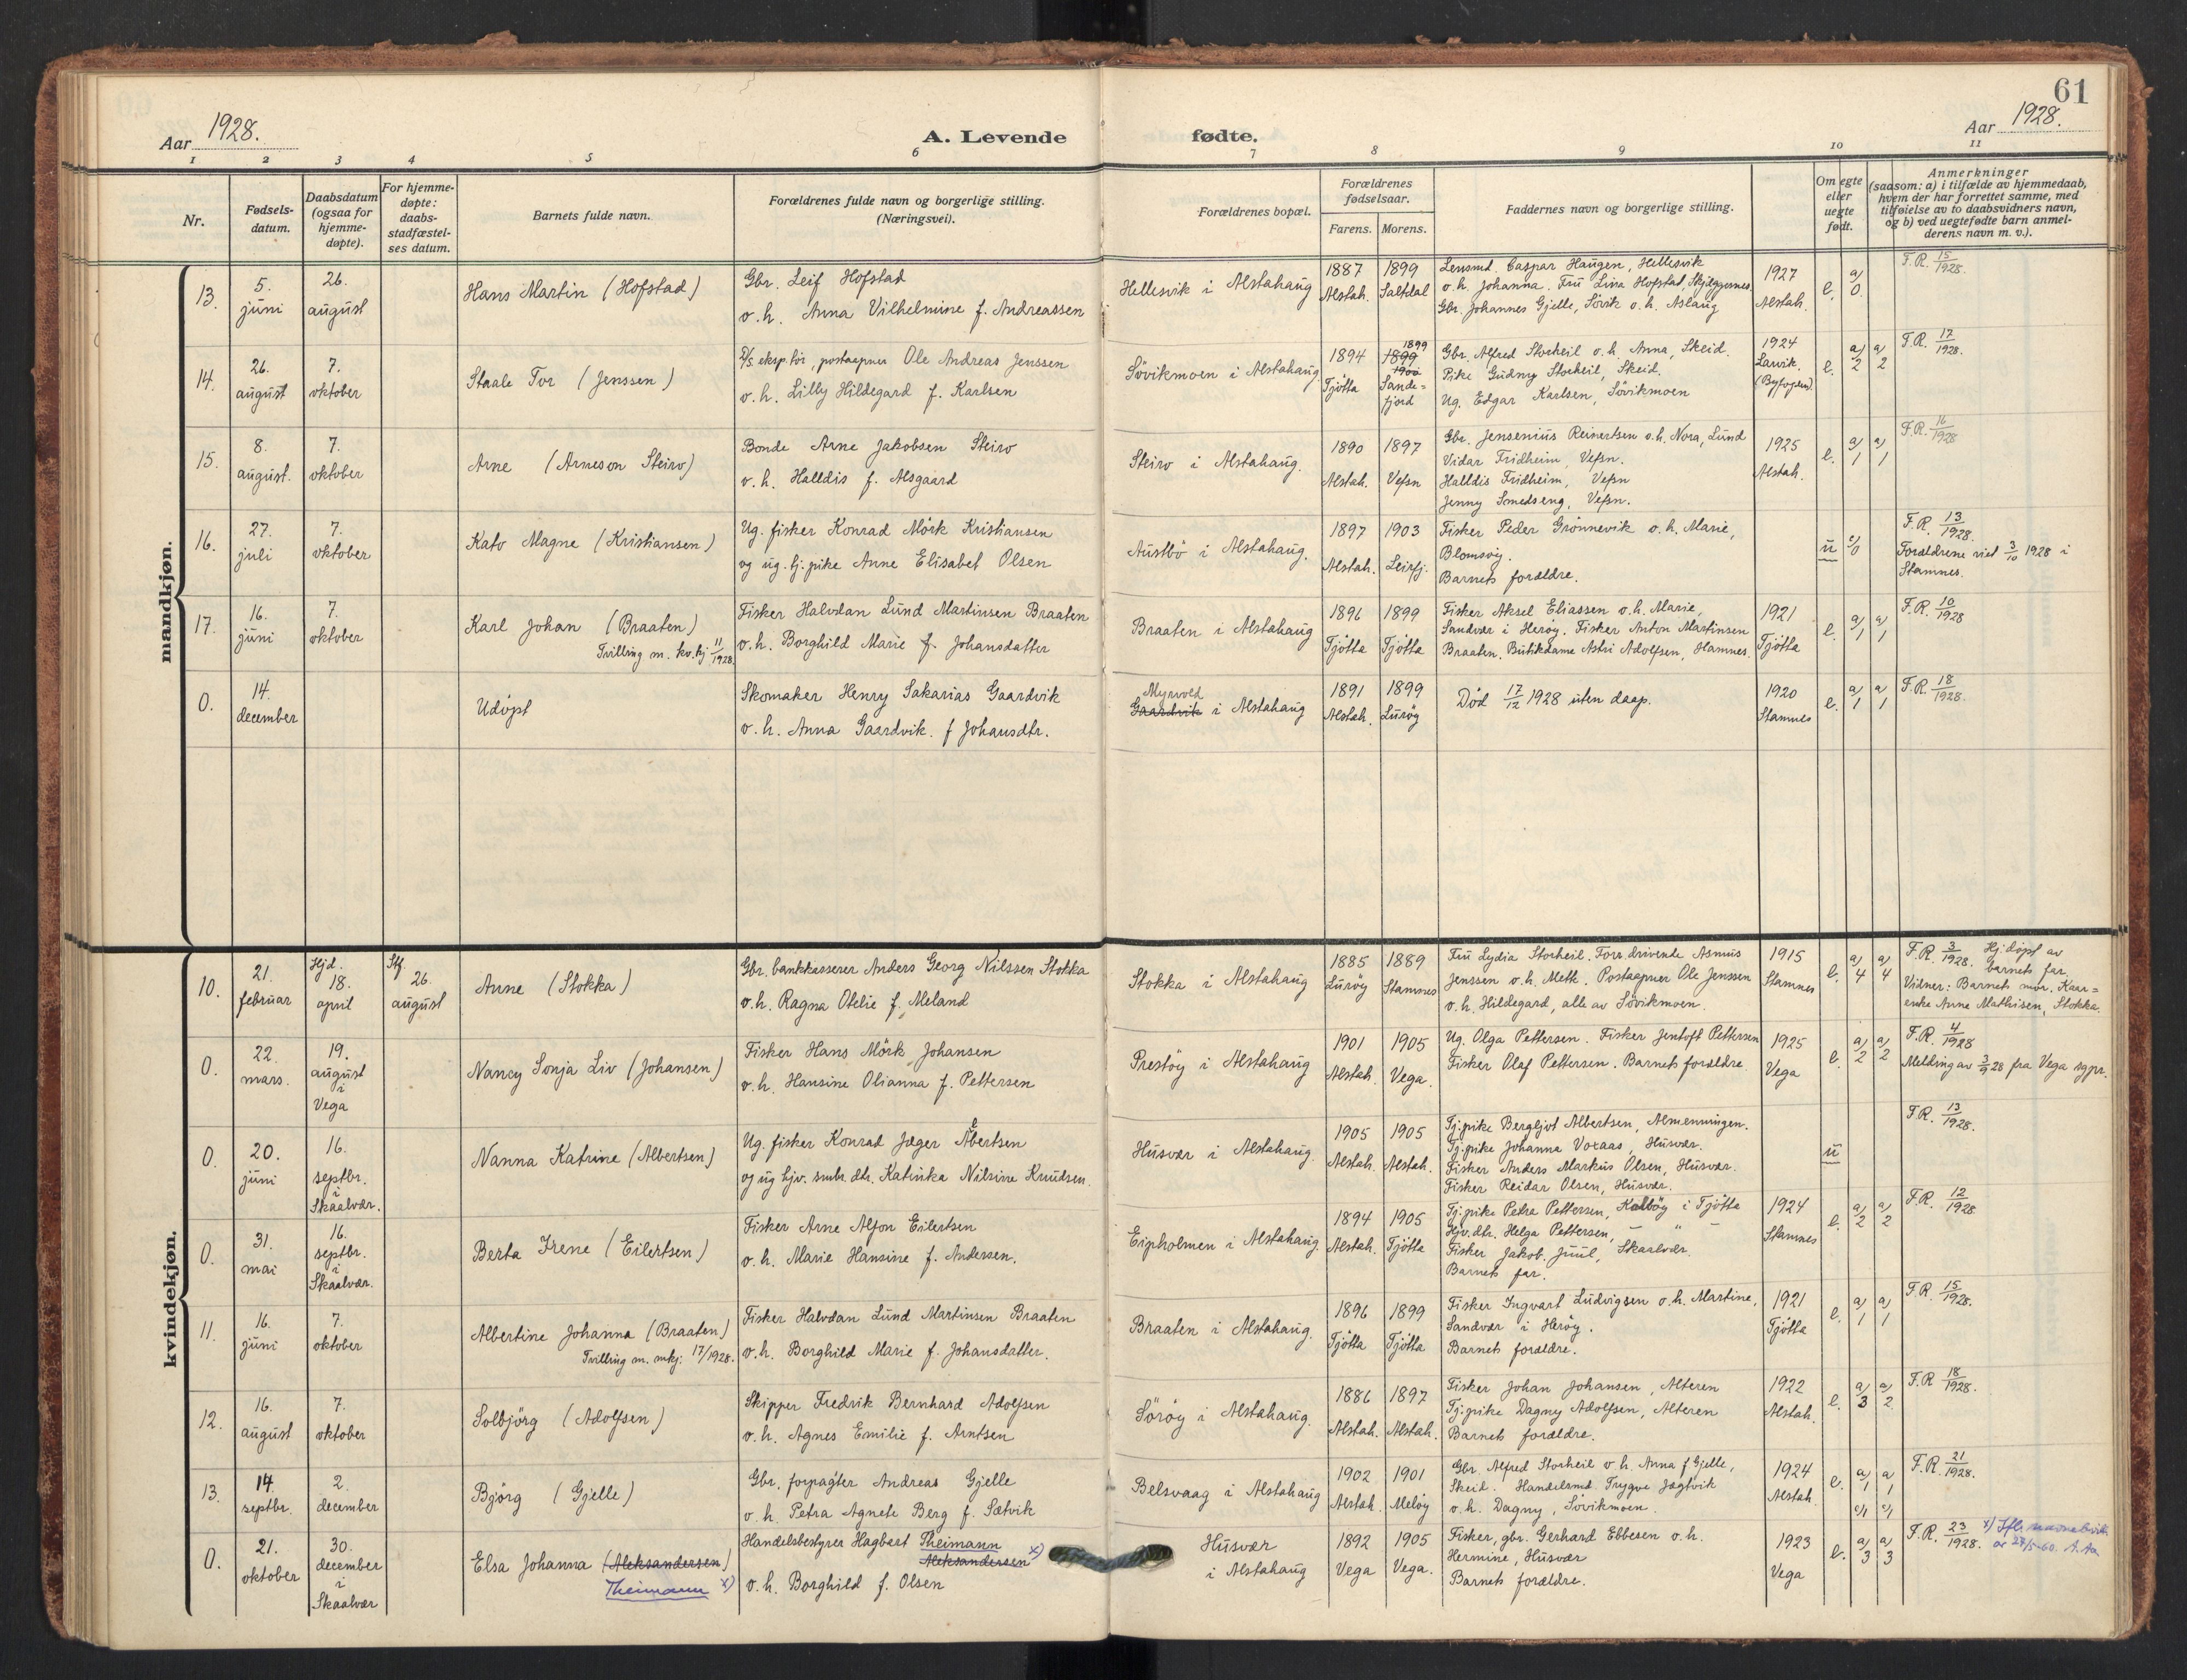 61
Aar 1928.
A. Levende fødte.
Aar 1928.
1 2 3 4 5 6 7 8 9 10 11
Nr.
Fødsels-
datum.
Daabsdatum
(ogsaa for
hjemme-
døpte).
For hjemme-
døpte:
daabs-
stadfæstel-
ses datum.
Barnets fulde navn.
Forældrenes fulde navn og borgerlige stilling.
(Næringsvei).
Forældrenes bopæl.
Forældrenes
fødselsaar.
Farens. Morens.
Faddernes navn og borgerlige stilling.
Om egte
eller
uegte
født.
Anmerkninger
(saasom: a) i tilfælde av hjemmedaab,
hvem der har forrettet samme, med
tilføielse av to daabsvidners navn,
og b) ved uegtefødte barn anmel-
derens navn m. v.).
mandkjøn.
13.
5.
juni
26.
august
Hans Martin (Hofstad)
Gbr. Leif Hofstad
o.h. Anna Vilhelmine f. Andreassen
Hellesvik i Alstahaug
1887
Alstah.
1899
Saltdal
Lensmd. Caspar Haugen, Hellesvik
o.h. Johanna. Fru Lina Hofstad,
Gbr. Johannes Gjelle, Søvik o.h. Aslaug
1927
Alstah.
e.
a/0
F.R. 15/1928.
14.
26.
august
7.
oktober
Staale Tor (Jenssen)
D/S eksp.tør, postaapner Ole Andreas Jenssen
o.h. Lilly Hildegard f. Karlsen
Søvikmoen i Alstahaug
1894
Tjøtta
1899
1899
1900
Sande-
fjord
Gbr. Alfred Storheil o.h. Anna, Skeid.
Pike Gudny Storheil, Skeid.
Ug. Edgar Karlsen, Søvikmoen
1924
Larvik.
(Byfogden).
e.
a/2 a/2
F.R. 17/1928.
15.
8.
august.
7.
oktober
Arne (Arneson Steiro)
Bonde Arne Jakobsen Steiro
o.h. Halldis f. Alsgaard
Steiro i Alstahaug.
1890
Alstah.
1897
Vefsn
Gbr. Jensenius Reinertsen o.h. Nora, Lund
Vidar Fridheim, Vefsn.
Halldis Fridheim, Vefsn
Jenny Smedseng, Vefsn.
1925
Alstah.
e.
a/1 a/1
F.R. 16/1928
16.
27.
juli
7.
oktober
Kato Magne (Kristiansen)
Ug. fisker Konrad Mörk Kristiansen
og ug. tj.pike Anne Elisabet Olsen
Austbö i Alstahaug.
1897
Alstah.
1903
Leirfj.
Fisker Peder Grönnevik o.h. Marie,
Blomsöy.
Barnets forældre.
u
F.R. 13/1928.
Forældrene viet 3/10 1928 i
Stamnes.
17.
16.
juni
7.
oktober
Karl Johan (Braaten)
Tvilling m. kv.kj 11/1928.
Fisker Halvdan Lund Martinsen Braaten
o.h. Borghild Marie f. Johansdatter
Braaten i Alstahaug
1896
Tjötta
1899
Tjötta
Fisker Aksel Eliassen o.h. Marie,
Sandvær i Heröy. Fisker Anton Martinsen
Braaten. Butikdame Astri Adolfsen, Hamnes.
1921
Tjötta
e.
a/1 a/1
F.R. 10/1928
0.
14.
december
Udöpt
Skomaker Henry Sakarias Gaardvik
o.h. Anna Gaardvik. f Johansdtr.
Myrvold
Gaardvik i Alstahaug
1891
Alstah.
1899
Luröy
Död 17/12 1928 uten daap.
1920
Stamnes
e.
a/1 a/1
F.R. 18/1928.
kvindekjøn.
10.
21.
februar
Hjd.
18.
april
Stf.
26.
august
Anne (Stokka)
Gbr. bankkasserer Anders Georg Nilssen Stokka
o.h. Ragna Otelie f. Meland
Stokka i Alstahaug
1885
Luröy
1889
Stamnes
Fru Lydia Storheil. Forr.drivende Asmus
Jenssen o.h. Meth. Postaapner Ole Jenssen
o.h. Hildegard, alle av Søvikmoen.
1915
Stamnes
e.
a/4 a/4
F.R. 3/1928. Hj.döpt av
barnets far.
Vidner: Barnets mor. Kaar-
enke Anne Mathisen, Stokka.
0.
22.
mars.
19.
august
i
Vega
Nancy Sonja Liv (Johansen)
Fisker Hans Mörk Johansen
o.h. Hansine Olianna f. Pettersen
Prestöy i Alstahaug
1901
Alstah.
1905
Vega.
Ug. Olga Pettersen. Fisker Jentoft Pettersen
Fisker Olaf Pettersen. Barnets forældre.
1925
Vega
e.
a/2 a/2
F.R. 4/1928
Melding av 3/9 28 fra Vega sgpr.
0.
20.
juni
16.
septbr.
i
Skaalvær.
Nanna Katrine (Albertsen)
Ug. fisker Konrad Jæger Albertsen
og ug hjv. smbr. dtr. Katinka Nilsine Knudsen.
Husvær i Alstahaug.
1905
Alstah.
1905
Alstah.
Tj.pike Bergljot Albertsen, Almenningen.
Tj.pike Johanna Voxaas, Husvær.
Fisker Anders Markus Olsen, Husvær.
Fisker Reidar Olsen, Husvær.
u
F.R. 13/1928.
0.
31.
mai
16.
septbr.
i
Skaalvær.
Berta Irene (Eilertsen)
Fisker Arne Alfon Eilertsen
o.h. Marie Hansine f. Andersen.
Eipholmen i Alstahaug
1894
Alstah.
1905
Tjötta
Tj.pike Petra Pettersen, Kalböy i Tjötta
Hjv.dtr. Helga Pettersen, — " —
Fisker Jakob Juul, Skaalvær.
Barnets far.
1924
Stamnes
e.
a/2 a/2
F.R. 12/1928
11.
16.
juni
7.
oktober
Albertine Johanna (Braaten)
Tvilling m. mkj. 17/1928.
Fisker Halvdan Lund Martinsen Braaten
o.h. Borghild Marie f. Johansdatter.
Braaten i Alstahaug.
1896
Tjötta
1899
Tjötta
Fisker Ingvart Ludvigsen o.h. Martine,
Sandvær i Heröy.
Barnets forældre.
1921
Tjötta
e.
a/1 a/1
F.R. 15/1928.
12.
16.
august
7.
oktober
Solbjörg (Adolfsen)
Skipper Fredrik Bernhard Adolfsen
o.h. Agnes Emilie f. Arntsen
Söröy i Alstahaug.
1886
Alstah.
1897
Alstah.
Fisker Johan Johansen, Alteren
Tj.pike Dagny Adolfsen, Alteren
Barnets forældre.
1922
Alstah.
e.
a/3 a/2
F.R 18/1928.
13.
14.
septbr.
2.
december
Björg (Gjelle)
Gbr. forpagter Andreas Gjelle
o.h. Petra Agnete Berg f. Sætvik
Belsvaag i Alstahaug
1902
Alstah.
1901
Melöy
Gbr. Alfred Storheil o.h. Anna f Gjelle,
Skeid. Handelsmd. Trygve Jægtvik
o.h. Dagny, Søvikmoen.
1924
Alstah.
e.
a/1 a/1
c/1 c/1
F.R. 21/1928.
0.
21.
oktober
30.
december
i
Skaalvær
Elsa Johanna (Aleksandersen)
Theimann x)
Handelsbestyrer Hagbart Theimann
Aleksandersen x)
o.h. Borghild f. Olsen
Husvær
i Alstahaug
1892
Vega
1905
Vega.
Fisker, gbr. Gerhard Ebbesen o.h.
Hermine, Husvær
Barnets forældre.
1923
Vega
e.
a/3 a/3
F.R. 23/1928.
x) Ifl. navnebevis
av 27/5-60.